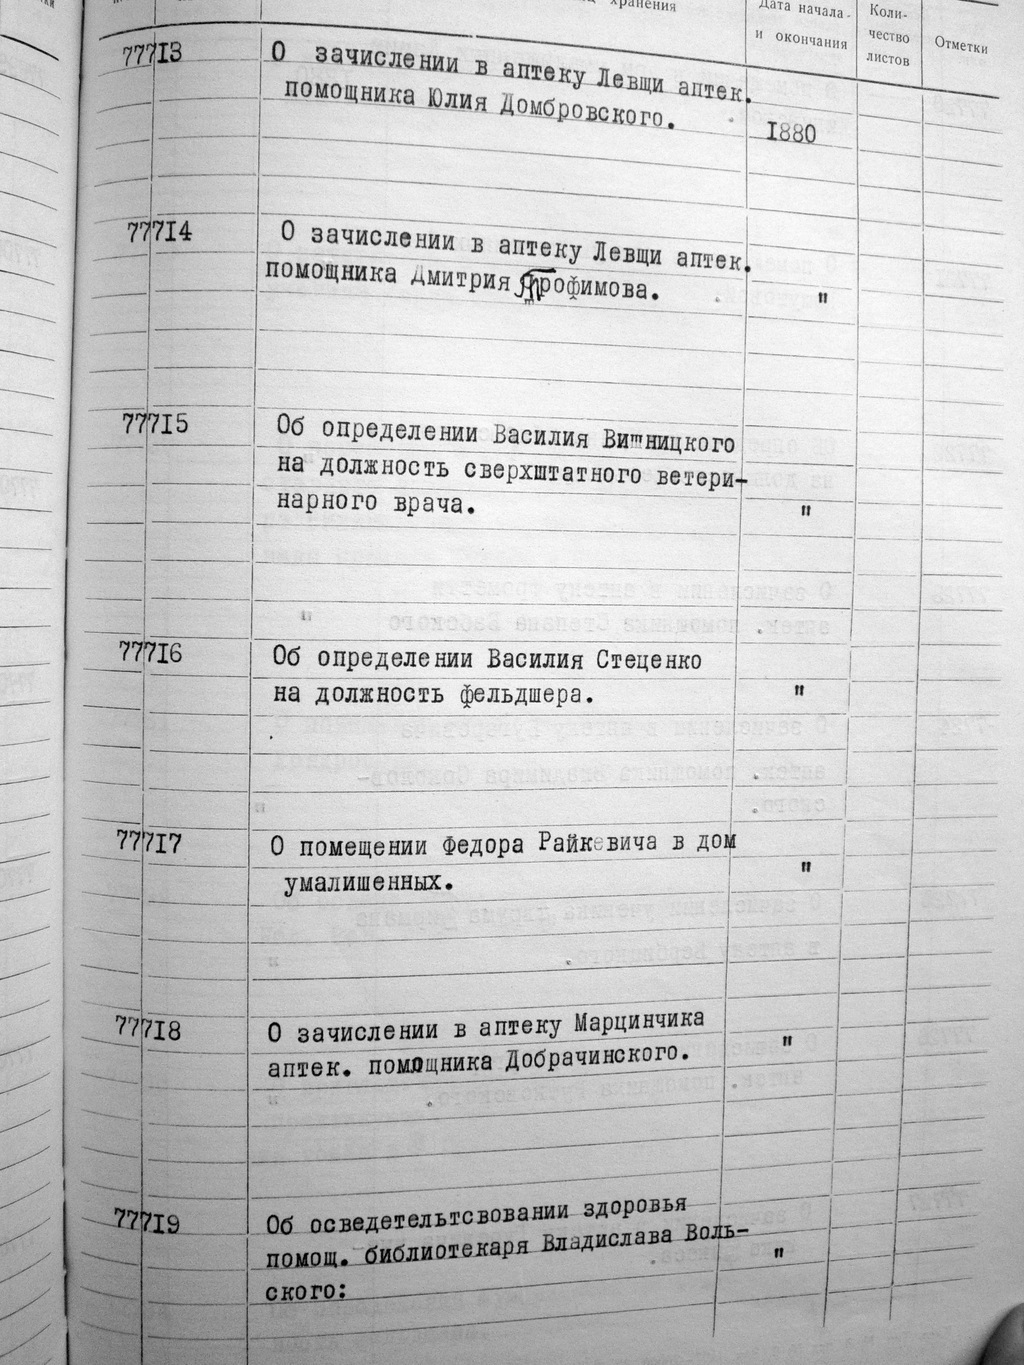 хранения
Дата начала
и окончания
Коли-
чество
листов
Отметки
77713
О зачислении в аптеку Левщи аптек.
помощника Юлия Домбровского.
1880
77714
О зачислении в аптеку Левщи аптек.
помощника Дмитрия Трофимова.
"
77715
Об определении Василия Вишницкого
на должность сверхштатного ветери-
нарного врача.
"
77716
Об определении Василия Стеценко
на должность фельдшера.
"
77717
О помещении Федора Райкевича в дом
умалишенных.
"
77718
О зачислении в аптеку Марцинчика
аптек. помощника Добрачинского.
"
77719
Об осведетельтсвовании здоровья
помощ. библиотекаря Владислава Воль-
ского:
"